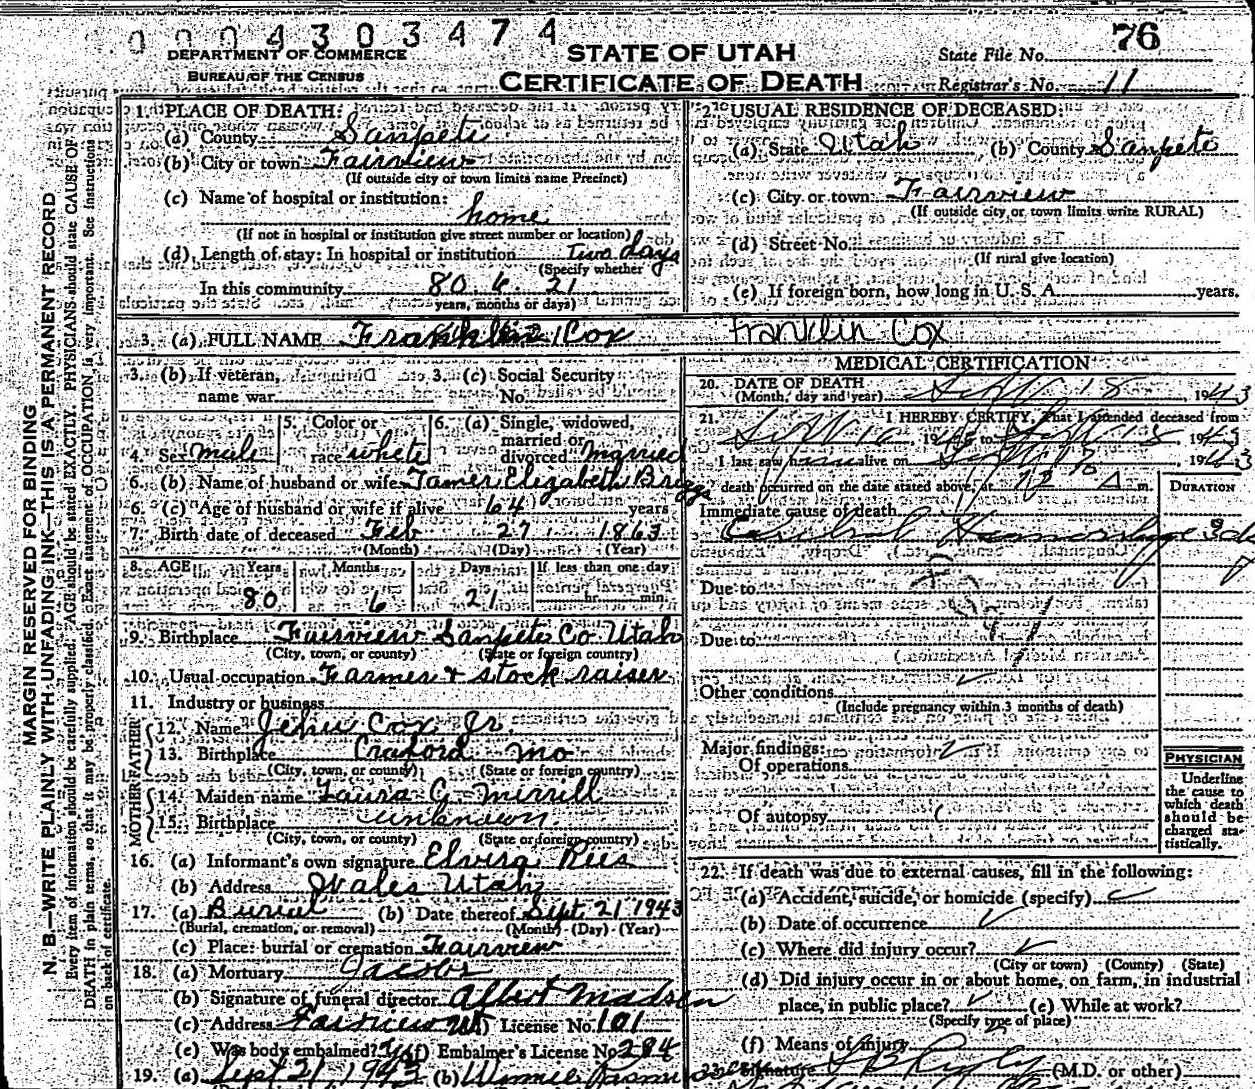 0 0 0 4 3 0 3 4 7 4
DEPARTMENT OF COMMERCE
BUREAU OF THE CENSUS
STATE OF UTAH
CERTIFICATE OF DEATH
State File No. 76
Registrar's No. 11
MARGIN RESERVED FOR BINDING
N. B.—WRITE PLAINLY WITH UNFADING INK—THIS IS A PERMANENT RECORD
Every item of information should be carefully supplied. AGE should be stated EXACTLY. PHYSICIANS should state CAUSE OF
DEATH in plain terms, so that it may be properly classified. Exact statement of OCCUPATION is very important. See instructions
on back of certificate.
1. PLACE OF DEATH:
(a) County Sanpete
(b) City or town Fairview
(If outside city or town limits name Precinct)
(c) Name of hospital or institution:
home
(If not in hospital or institution give street number or location)
(d) Length of stay: In hospital or institution two days
(Specify whether
In this community 80 6 21
years, months or days)
2. USUAL RESIDENCE OF DECEASED:
(a) State Utah (b) County Sanpete
(c) City or town Fairview
(If outside city or town limits write RURAL)
(d) Street No.
(If rural give location)
(e) If foreign born, how long in U. S. A. years.
3. (a) FULL NAME Franklin Cox Franklin Cox
3. (b) If veteran, 3. (c) Social Security
name war No.
4. Sex male 5. Color or race white 6. (a) Single, widowed, married or divorced Married
6. (b) Name of husband or wife Tamer Elizabeth Briggs
6. (c) Age of husband or wife if alive 64 years
7. Birth date of deceased Feb 27 1863
(Month) (Day) (Year)
8. AGE Years Months Days If less than one day
80 6 21 hr. min.
9. Birthplace Fairview Sanpete Co Utah
(City, town, or county) (State or foreign country)
10. Usual occupation Farmer + stock raiser
11. Industry or business
FATHER
12. Name Jehu Cox Jr.
13. Birthplace Craford Mo
(City, town, or county) (State or foreign country)
MOTHER
14. Maiden name Laura C. Mirrill
15. Birthplace unknown
(City, town, or county) (State or foreign country)
16. (a) Informant's own signature Elvira Rees
(b) Address Wales Utah
17. (a) Burial (b) Date thereof Sept. 21 1943
(Burial, cremation, or removal) (Month) (Day) (Year)
(c) Place: burial or cremation Fairview
18. (a) Mortuary Jacobs
(b) Signature of funeral director Albert Madsen
(c) Address Fairview Ut License No. 101
(e) Was body embalmed? Yes (f) Embalmer's License No. 284
19. (a) Sept 21, 1943 (b)
MEDICAL CERTIFICATION
20. DATE OF DEATH
(Month, day and year) Sept 18, 1943
21. I HEREBY CERTIFY, That I attended deceased from
Sept 16, 1943 to Sept 18, 1943
I last saw him alive on Sept 18, 1943
death occurred on the date stated above, at m.
DURATION
Immediate cause of death
Cerebral Hemorrhage
Due to
Due to
Other conditions
(Include pregnancy within 3 months of death)
Major findings:
Of operations
Of autopsy
PHYSICIAN
Underline
the cause to
which death
should be
charged sta-
tistically.
22. If death was due to external causes, fill in the following:
(a) Accident, suicide, or homicide (specify)
(b) Date of occurrence
(c) Where did injury occur?
(City or town) (County) (State)
(d) Did injury occur in or about home, on farm, in industrial
place, in public place? (e) While at work?
(Specify type of place)
(f) Means of injury
23. Signature (M.D. or other)